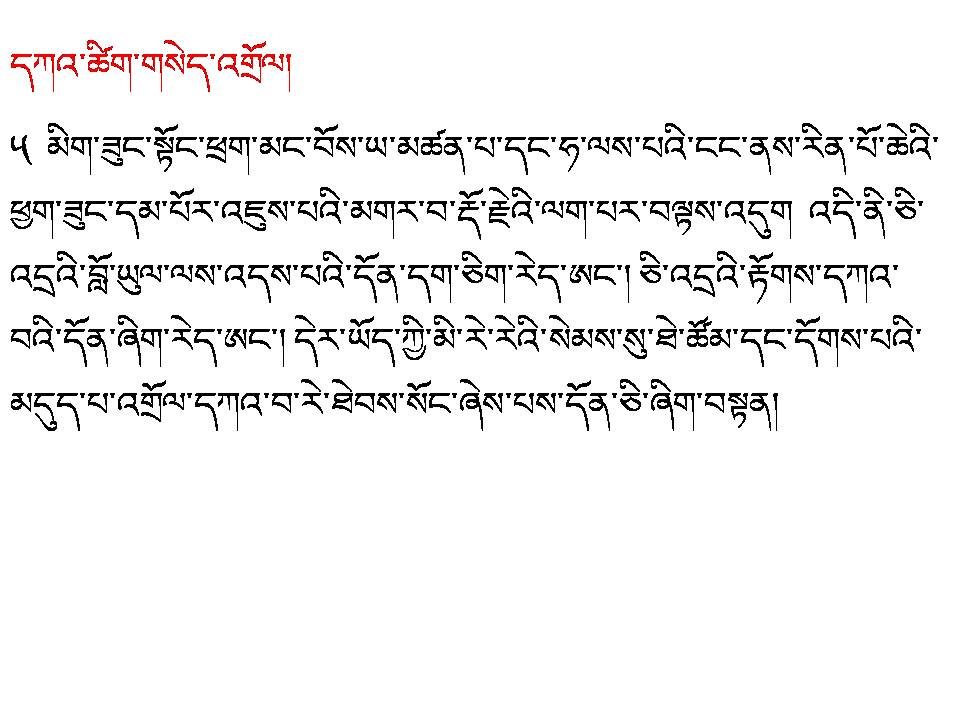 དཀའ་ཚིག་གསེད་འགྲོལ།
༥ མིག་ཟུང་སྟོང་ཕྲག་མང་བོས་ཡ་མཚན་པ་དང་ཧ་ལས་པའི་ངང་ནས་རིན་པོ་ཆེའི་
ཕྱག་ཟུང་དམ་པོར་འཇུས་པའི་མགར་བ་རྡོ་རྗེའི་ལག་པར་བལྟས་འདུག འདི་ནི་ཅི་
འདྲའི་བློ་ཡུལ་ལས་འདས་པའི་དོན་དག་ཅིག་རེད་ཨང་། ཅི་འདྲའི་རྟོགས་དཀའ་
བའི་དོན་ཞིག་རེད་ཨང་། དེར་ཡོད་ཀྱི་མི་རེ་རེའི་སེམས་སུ་ཐེ་ཚོམ་དང་དོགས་པའི་
མདུད་པ་འགྲོལ་དཀའ་བ་རེ་ཐེབས་སོང་ཞེས་པས་དོན་ཅི་ཞིག་བསྟན།